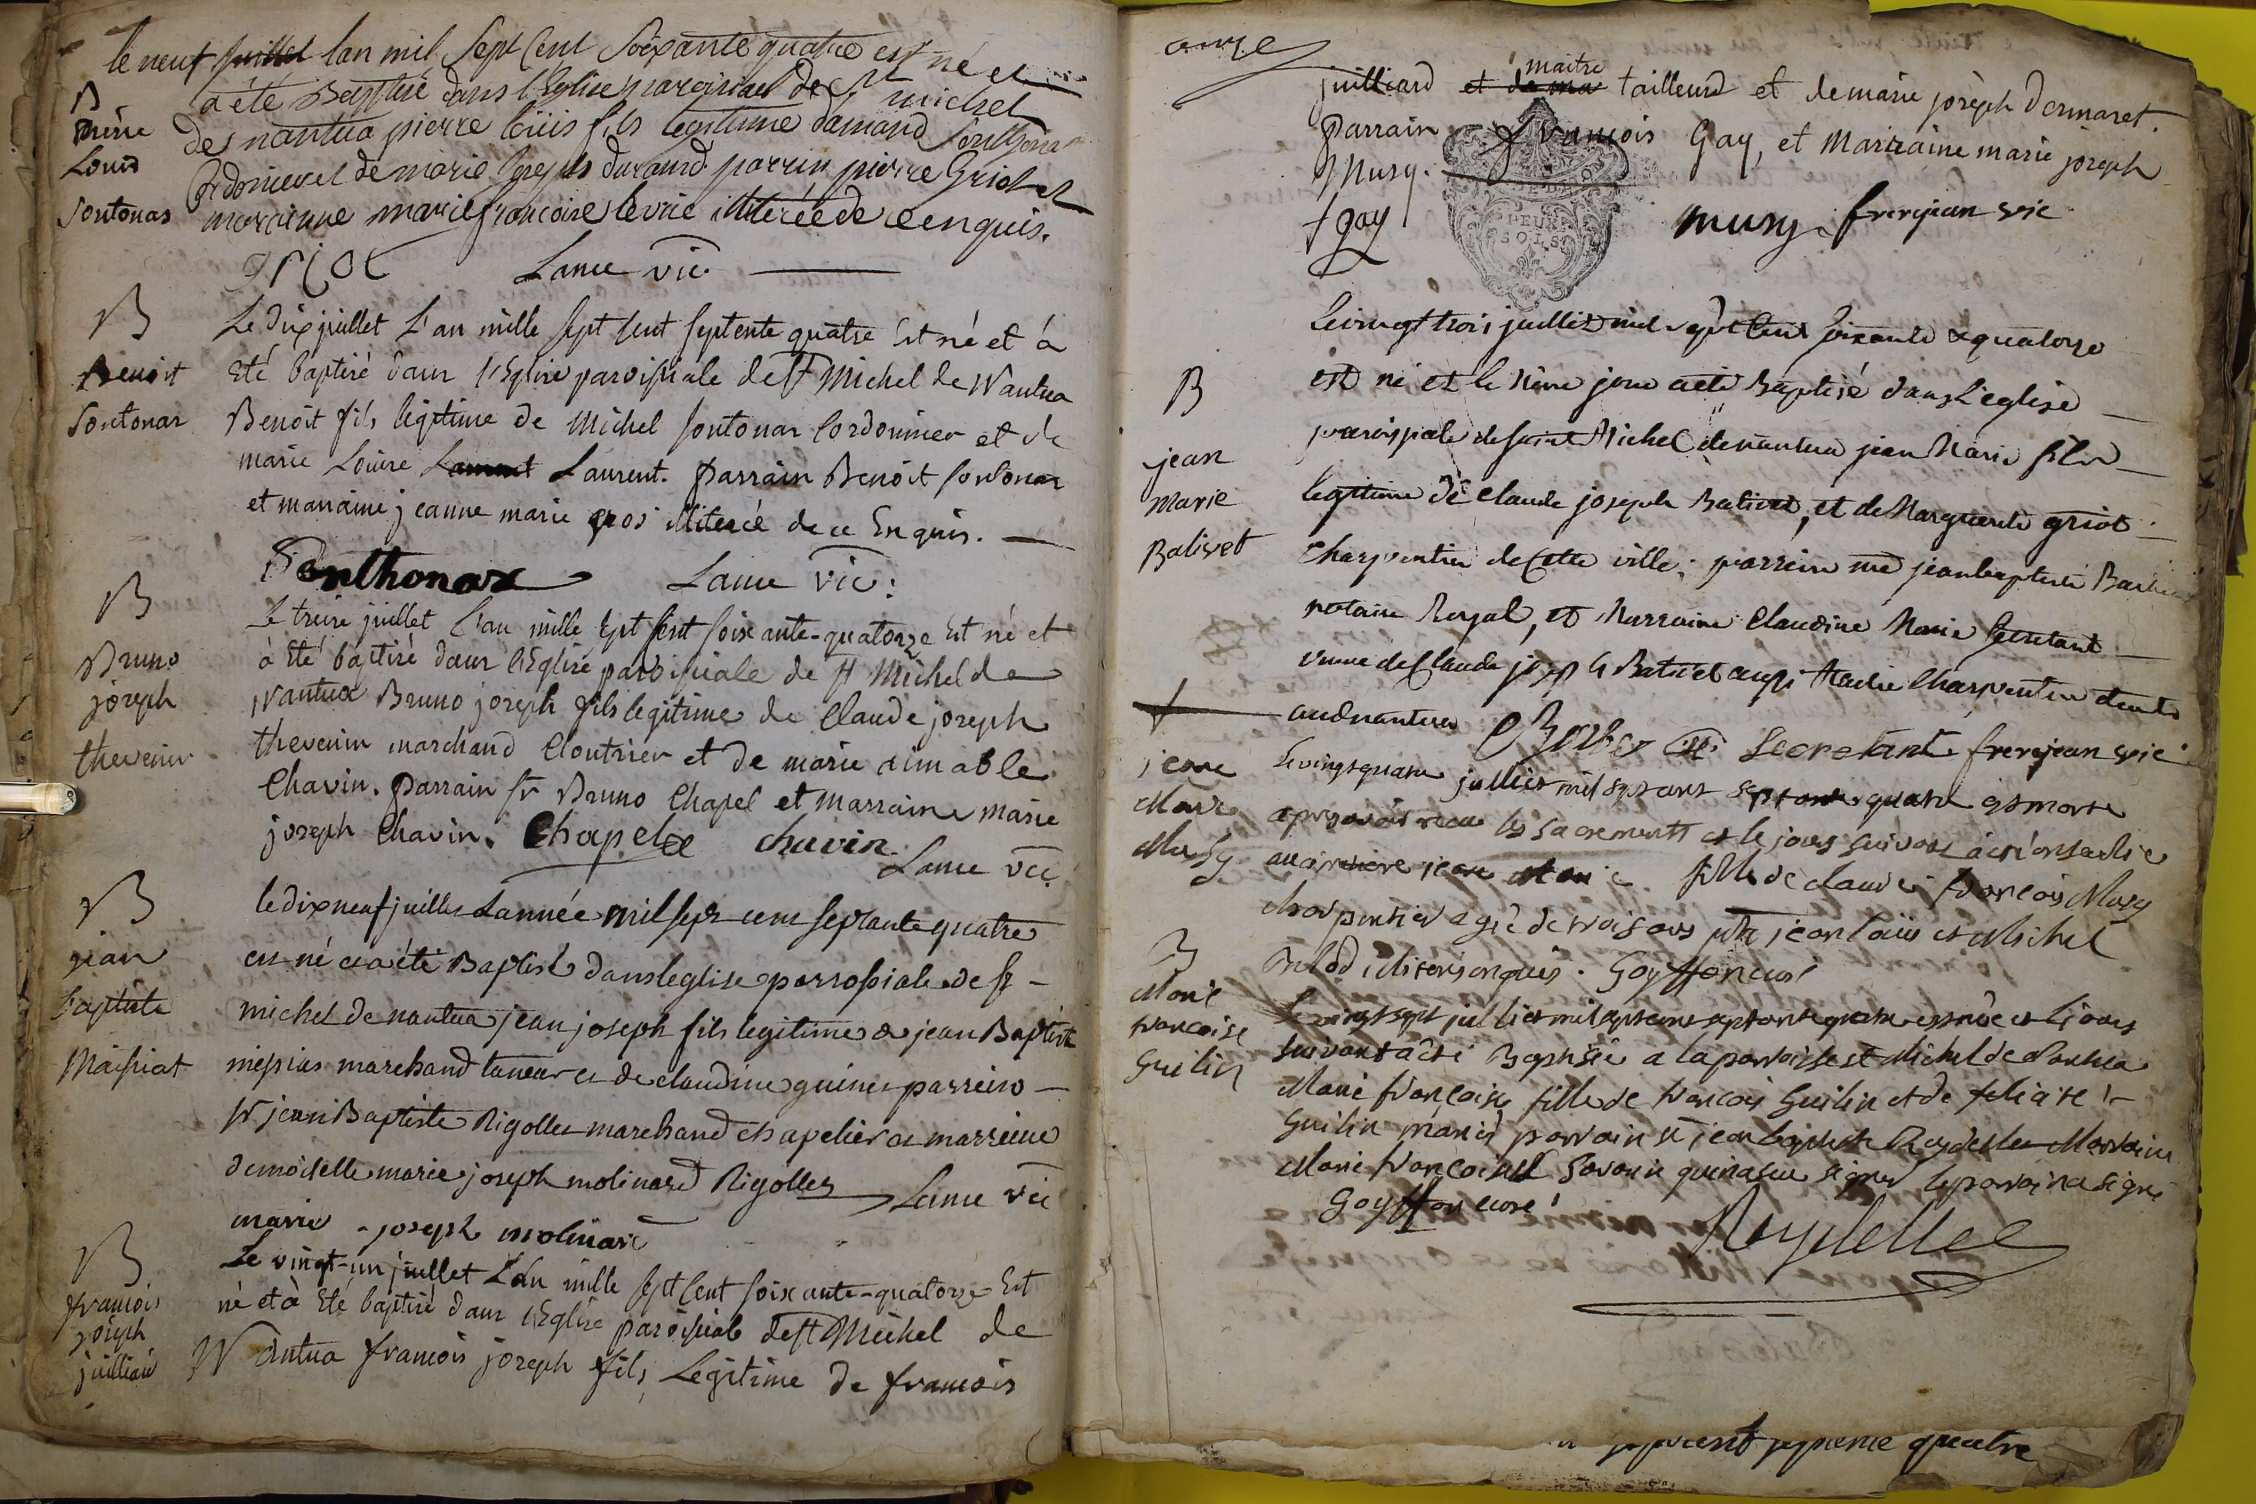 le neuf juillet lan mil Sept Cent Soixante quatre est né et
a été Baptisé dans l'Eglise paroissial de St michel
de nantua pierre loüis fils legitime damand Sonthona
Cordonier et de marie Joseph durand parrin pierre Griot et
maraine marie francoise levrie illiterée de ce enquis.
B
pierre
Louis
Sontonas
griot Lanie vic.
B
Benoit
Sontonax
Le dix juillet L'an mille sept cent septente quatre Est né et à
Eté baptisé dans l'Eglise paroissiale de St Michel de Nantua
Benoit fils legitime de Michel sontonax Cordonnier et de
marie Louise Laurent. parrain Benoit sontonax
et marraine jeanne marie gros illiterée de ce Enquis.
Sonthonax Lanie vic:
B
Bruno
joseph
thevenin
Le treize juillet l'an mille sept cent soixante-quatorze Est né et
à Eté baptisé dans l'Eglise paroissiale de St Michel de
Nantua Bruno joseph fils legitime de Claude joseph
thevenin marchand Cloutrier et de marie aimable
Chavin. parrain sr Bruno Chapel et marraine marie
joseph Chavin. Chapel chavin
Lanie vic.
B
jean
baptiste
Maissiat
le dix neuf juillet Lannée mil sept cent septante quatre
est né et a été Baptisé dans leglise parrossiale de St
michel de nantua jean joseph fils legitime de jean Baptiste
messias marchand taneur et de claudine guinet parrein
sr jean Baptiste Rigollet marchand chapelier et marreine
demoiselle marie joseph molinard Rigollet Lanie vic
marie joseph molinard
B
francois
joseph
juilliard
Le vingt-un juillet L'an mille sept cent soixante-quatorze Est
né et à Eté baptisé dans l'Eglise paroissiale de St Michel de
Nantua francois joseph fils Legitime de francois
juilliard et de ma maitre tailleurs et de marie joseph Dermaret.
parrain francois Gay, et Marraine marie joseph
Musy.
f gay musy frerejean vic
B
jean
marie
Balivet
Le vingt trois juillet mil sept cent soixante et quatorze
est né et le même jour a été Baptisé dans L'eglise
paroissiale de saint Michel de nantua jean Marie fils
legitime de Claude joseph Balivet, et de Marguerite griot
Charpentier de Cette ville; parrein me jean baptiste
notaire Royal, et Marraine Claudine Marie Secretant
de Claude joseph Balivet aussi Charpentier
audnantua Secretant frerejean vic
jeane
Marie
Musy
Le vingt quatre juillier mil sept cent septante quatre est morte
apres avoir recu les sacrements et le jour suivant a été ensevelie
au cimetiere jeane Marie fille de claude francois Musy
charpentier agée de trois ans pnt jean loüis et Michel
illiteres enquis. Goyffon curé
B
Marie
francoise
Guilin
Le vingt sept jullier mil sept cent septante quatre est née et le jour
suivant a été Baptisée a la parroisse st Michel de Nantua
Marie françoise fille de francois Guilin et de
Guilin mariés parrain sr jean baptiste Reydellet Marraine
Marie francoise Savarin qui na seu signer le parrain a signé
Goyffon curé Reydellet
septante quatre